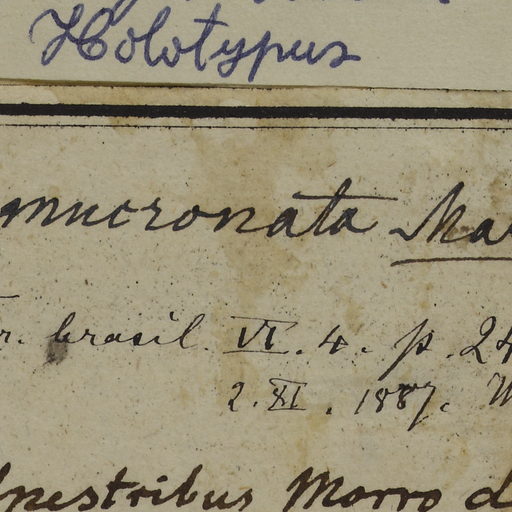 Holotypus
mucronata Mar
r. brasil. VI. 4. p. 24
2. XI. 1887. W
pestribus Morro d